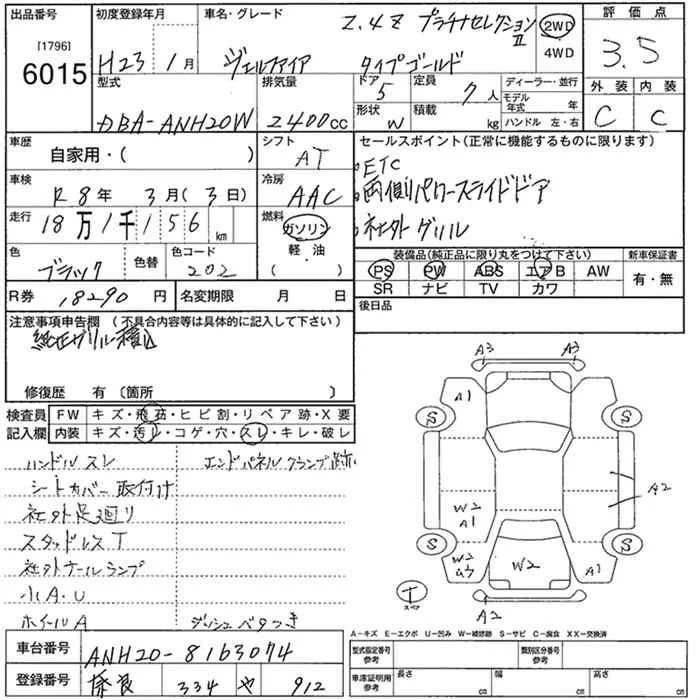 出品番号 初度登録年月 車名・グレード 評価点
[1796] H23 1月 Z.4Z プラチナセレクションⅡ 2WD 3.5
6015 ヴェルファイア タイプゴールド 4WD
外装 内装
型式 排気量 ドア 5 定員 7人 ディーラー・並行 C C
モデル年式 年
DBA-ANH20W 2400cc 形状 W 積載 kg ハンドル 左・右
車歴 シフト セールスポイント(正常に機能するものに限ります)
自家用・( ) AT ・ETC
車検 冷房 ・両側パワースライドドア
R8年 3月(3日) AAC ・社外グリル
走行 燃料
18万1千156km ガソリン 装備品(純正品に限り丸をつけて下さい) 新車保証書
色 色替 色コード 軽・油 PS PW ABS エアB AW 有・無
ブラック 202 ( ) SR ナビ TV カワ
R券 18290円 名変期限 月 日 後日品
注意事項申告欄 (不具合内容等は具体的に記入して下さい)
純正グリル積込
修復歴 有 〔箇所 〕
検査員 FW キズ・飛石・ヒビ割・リペア跡・X要
記入欄 内装 キズ・汚レ・コゲ・穴・スレ・キレ・破レ
ハンドルスレ エンドパネルクランプ跡
シートカバー取付け
社外足廻り
スタッドレスT
社外テールランプ
小A.U
ホイールA ダッシュベタつき
A3 A3
A1
S S
A2
W2
A1
S S
W2
U3 W2 A1
T
スペア
A2
A−キズ E−エクボ U−凹み W−補修跡 S−サビ C−腐食 XX−交換済
車台番号 ANH20-8163074 型式指定番号 参考 類別区分番号 参考
登録番号 334 や 912 車庫証明用 参考 長さ cm 幅 cm 高さ cm